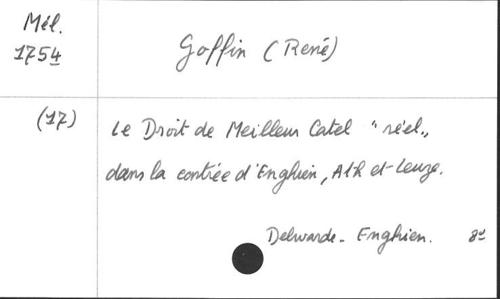 Mél.
1754
Goffin (René)
(17)
Le Droit de Meilleur Catel "réel„
dans la contrée d'Enghien, Ath et Leuze.
Delwarde - Enghien. 8º